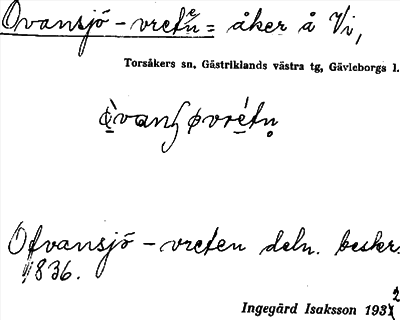 Ovansjö-vreten = åker å Vi,
Torsåkers sn, Gästriklands västra tg, Gävleborgs l.
Ofvansjö-vreten deln. beskr.
1836.
Ingegärd Isaksson 1932